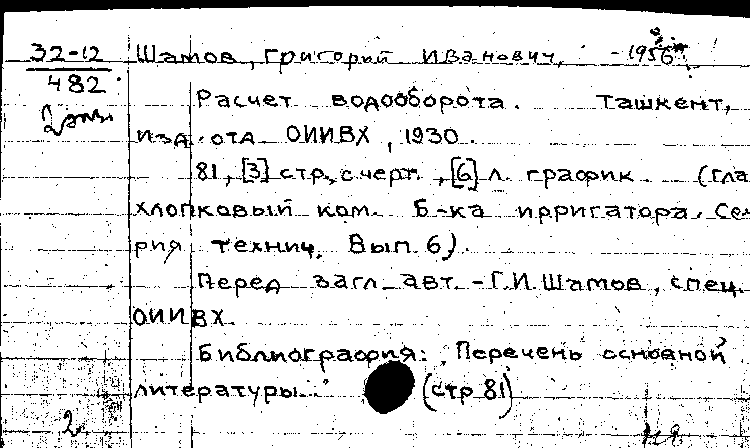 32-12 Шамов, Григорий Иванович, -1956
482
2 экз.
Расчет водооборота. Ташкент,
изд. ота ОИИВХ, 1930.
81, [3] стр., с черт., [6] л. график (Гла
хлопковый ком. Б-ка ирригатора. Се-
рия технич. Вып. 6).
Перед загл. авт. - Г.И. Шамов, спец.
ОИИВХ.
Библиография: "Перечень основной
литературы..." (стр 81)
2